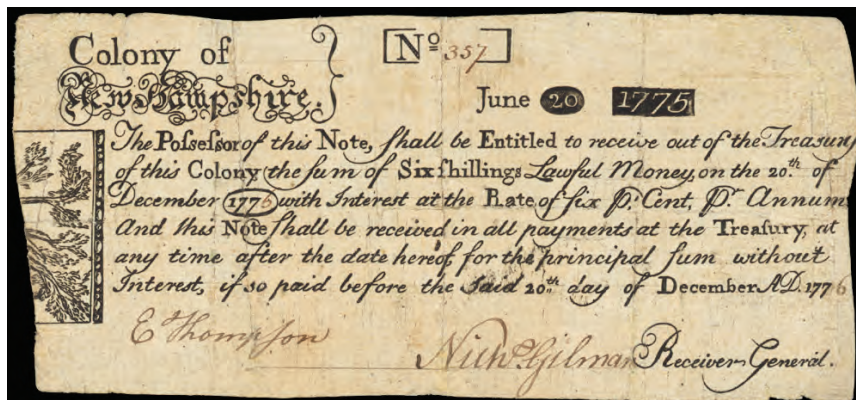 Colony of
New Hampshire.
No 357
June 20 1775
The Possessor of this Note, shall be Entitled to receive out of the Treasury
of this Colony the sum of Six shillings Lawful Money, on the 20.th of
December 1776 with Interest at the Rate of six Pr. Cent, Pr Annum
And this Note shall be received in all payments at the Treasury, at
any time after the date hereof, for the principal sum without
Interest, if so paid before the said 20.th day of December A.D. 1776
E Thompson
Nichs. Gilman Receiver General.